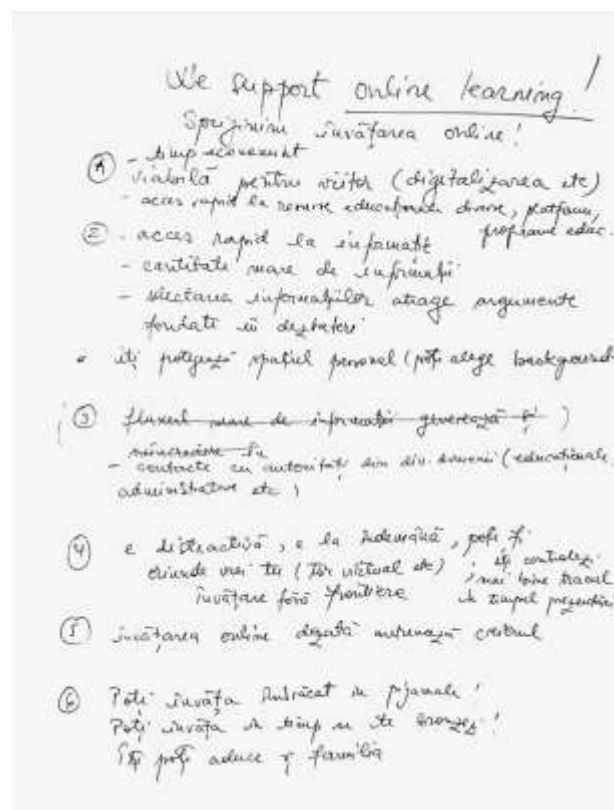 We support online learning!
Sprijinim învățarea online!
① - timp economisit
viabilă pentru viitor (digitalizarea etc)
- acces rapid la resurse educaționale diverse, platforme,
programe educ.
② - acces rapid la informație
- cantitate mare de informații
- selectarea informațiilor atrage argumente
fondate în dezbateri
• îți protejează spațiul personal (poți alege background
③ fluxul mare de informații generează și )
- contacte cu autorități din div. domenii (educaționale,
administrative etc)
④ e distractivă, e la îndemână, poți fi
oriunde vrei tu (tur virtual etc) ; îți controlezi
învățare fără frontiere mai bine tracul
în timpul prezentării
⑤ învățarea online dezvoltă antrenează creierul
⑥ Poți învăța îmbrăcat în pijamale!
Poți învăța în timp ce te bronzezi!
Îți poți aduce și familia